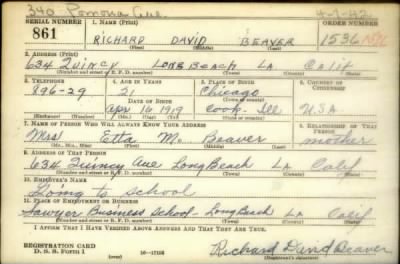 340 Pomona Ave. 4-7-42
SERIAL NUMBER 1. NAME (Print) ORDER NUMBER
861 RICHARD DAVID BEAVER 1536
(First) (Middle) (Last)
2. ADDRESS (Print)
634 Quincy Long Beach LA Calif
(Number and street or R. F. D. number) (Town) (County) (State)
3. TELEPHONE 4. AGE IN YEARS 5. PLACE OF BIRTH 6. COUNTRY OF CITIZENSHIP
896-29 21 Chicago
DATE OF BIRTH (Town or county)
Apr 16 1919 Cook-Ill U.S.A.
(Mo.) (Day) (Yr.) (State or country)
7. NAME OF PERSON WHO WILL ALWAYS KNOW YOUR ADDRESS 8. RELATIONSHIP OF THAT PERSON
Mrs Etta M. Beaver mother
(Mr., Mrs., Miss) (First) (Middle) (Last)
9. ADDRESS OF THAT PERSON
634 Quincy Ave Long Beach LA Calif
(Number and street or R. F. D. number) (Town) (County) (State)
10. EMPLOYER'S NAME
Going to school
11. PLACE OF EMPLOYMENT OR BUSINESS
Sawyer Business School - Long Beach LA Calif
(Number and street or R. F. D. number) (Town) (County) (State)
I AFFIRM THAT I HAVE VERIFIED ABOVE ANSWERS AND THAT THEY ARE TRUE.
REGISTRATION CARD
D. S. S. Form 1 16-17105 Richard David Beaver
(Registrant's signature)